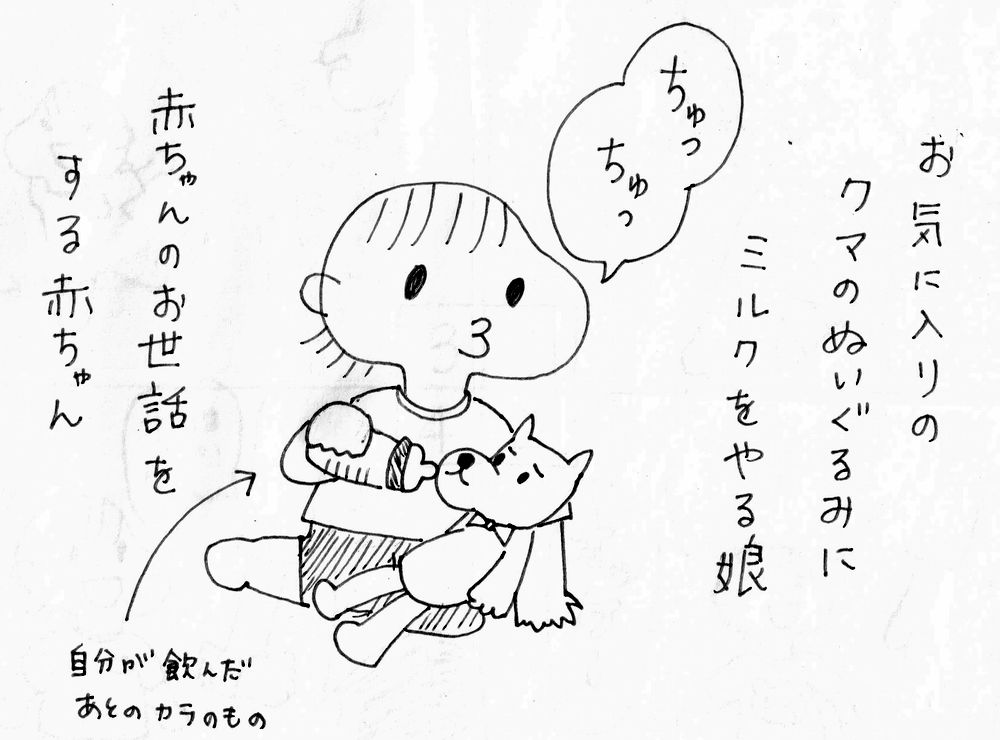 お気に入りの
クマのぬいぐるみに
ミルクをやる娘
ちゅっ
ちゅっ
赤ちゃんのお世話を
する赤ちゃん
自分が飲んだ
あとのカラのもの